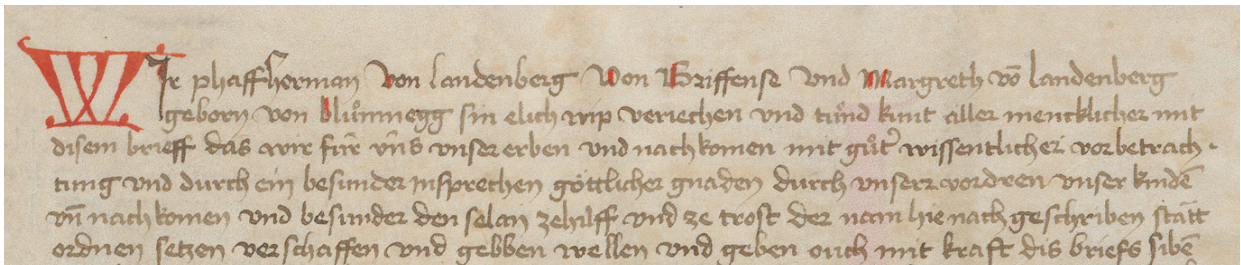 WIr phaff herman von landenberg von Griffense vnd Margreth vō landenberg
geborn von bluͦmnegg sin elich wip veriechen vnd tuͦnd kunt aller mencklicher mit
disem brieff das wir fuͤr vns vnser erben vnd nachkomen mit guͦter wissentlicher vorbetrach-
tung vnd durch ein besunder insprechen goͤttlicher gnaden durch vnserr vordren vnser kindē
vn̄ nachkomen vnd besunder den selan zehilff vnd ze trost der nam hie nach geschriben statt
ordnen setzen verschaffen vnd gebben wellen vnd geben ouch mit kraft dis briefs sibē